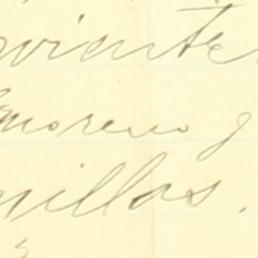 viente
moreno y
illas.